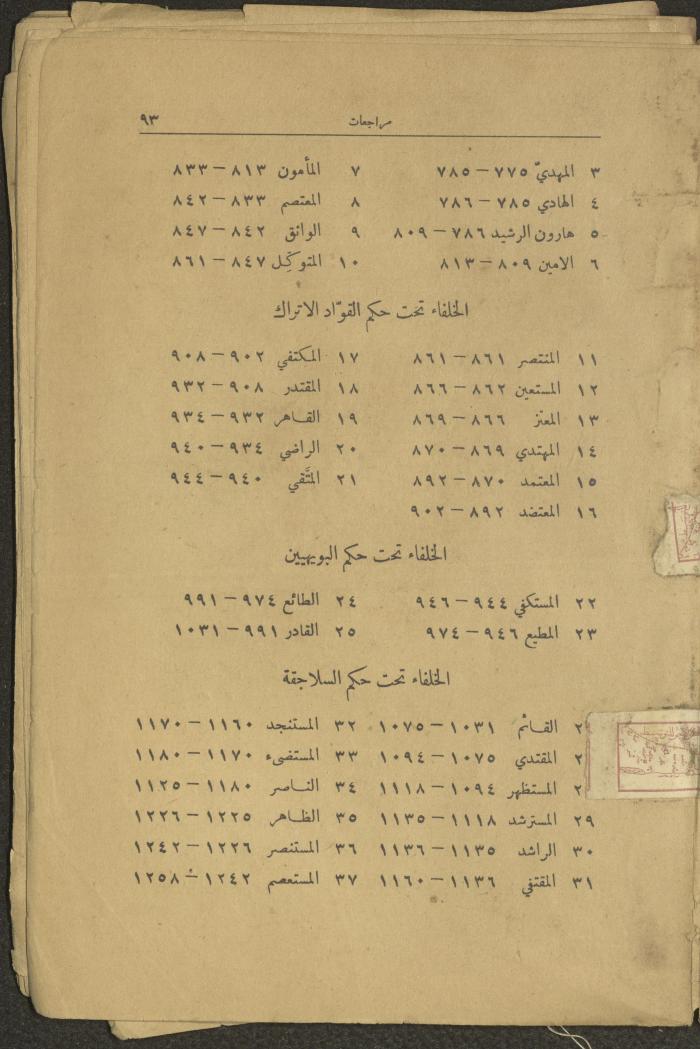 مراجعات ٩٣
٣ المهديّ ٧٧٥ – ٧٨٥ ٧ المأمون ٨١٣ – ٨٣٣
٤ الهادي ٧٨٥ – ٧٨٦ ٨ المعتصم ٨٣٣ – ٨٤٢
٥ هارون الرشيد ٧٨٦ – ٨٠٩ ٩ الواثق ٨٤٢ – ٨٤٧
٦ الامين ٨٠٩ – ٨١٣ ١٠ المتوكِّل ٨٤٧ – ٨٦١
الخلفاء تحت حكم القوّاد الاتراك
١١ المنتصر ٨٦١ – ٨٦١ ١٧ المكتفي ٩٠٢ – ٩٠٨
١٢ المستعين ٨٦٢ – ٨٦٦ ١٨ المقتدر ٩٠٨ – ٩٣٢
١٣ المعتز ٨٦٦ – ٨٦٩ ١٩ القاهر ٩٣٢ – ٩٣٤
١٤ المهتدي ٨٦٩ – ٨٧٠ ٢٠ الراضي ٩٣٤ – ٩٤٠
١٥ المعتمد ٨٧٠ – ٨٩٢ ٢١ المتَّقي ٩٤٠ – ٩٤٤
١٦ المعتضد ٨٩٢ – ٩٠٢
الخلفاء تحت حكم البويهيين
٢٢ المستكفي ٩٤٤ – ٩٤٦ ٢٤ الطائع ٩٧٤ – ٩٩١
٢٣ المطيع ٩٤٦ – ٩٧٤ ٢٥ القادر ٩٩١ – ١٠٣١
الخلفاء تحت حكم السلاجقة
٢ القائم ١٠٣١ – ١٠٧٥ ٣٢ المستنجد ١١٦٠ – ١١٧٠
٢ المقتدي ١٠٧٥ – ١٠٩٤ ٣٣ المستضىء ١١٧٠ – ١١٨٠
٢ المستظهر ١٠٩٤ – ١١١٨ ٣٤ الناصر ١١٨٠ – ١١٢٥
٢٩ المسترشد ١١١٨ – ١١٣٥ ٣٥ الظاهر ١٢٢٥ – ١٢٢٦
٣٠ الراشد ١١٣٥ – ١١٣٦ ٣٦ المستنصر ١٢٢٦ – ١٢٤٢
٣١ المقتفي ١١٣٦ – ١١٦٠ ٣٧ المستعصم ١٢٤٢ – ١٢٥٨